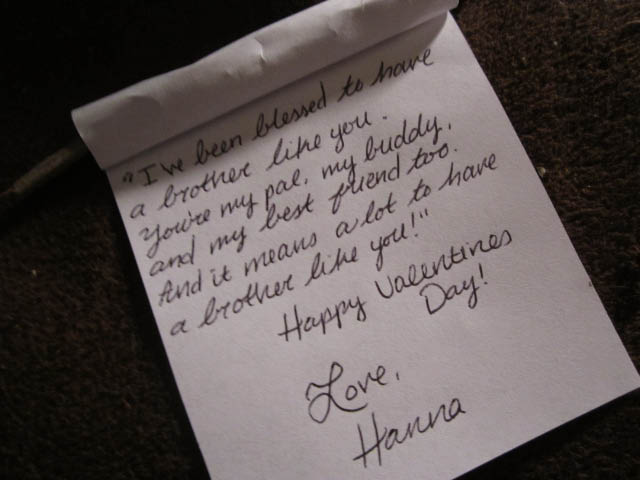 "I've been blessed to have
a brother like you.
You're my pal, my buddy,
and my best friend too.
And it means a lot to have
a brother like you!"
Happy Valentines
Day!
Love,
Hanna